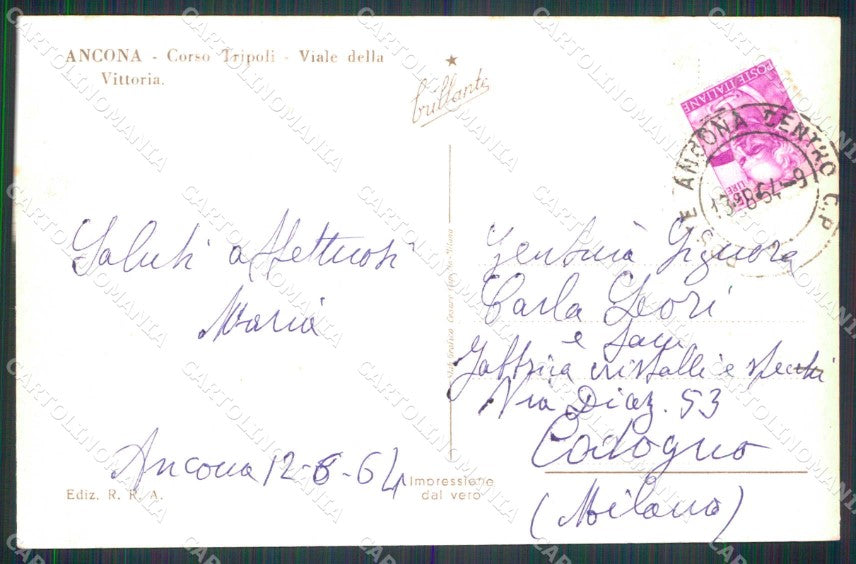 ANCONA - Corso Tripoli - Viale della
Vittoria.
brillante
POSTE ITALIANE
LIRE
E ANCONA CENTRO C.P.
13-8-64-9
Saluti affettuosi
Maria
Ancona 12-8-64
Gentma Signora
Carla Deori
e Fam
Fabbrica cristalli e specchi
Via Diaz. 53
Codogno
(Milano)
Ediz. R. R. A.
Impressione
dal vero
CARTOLINOMANIA